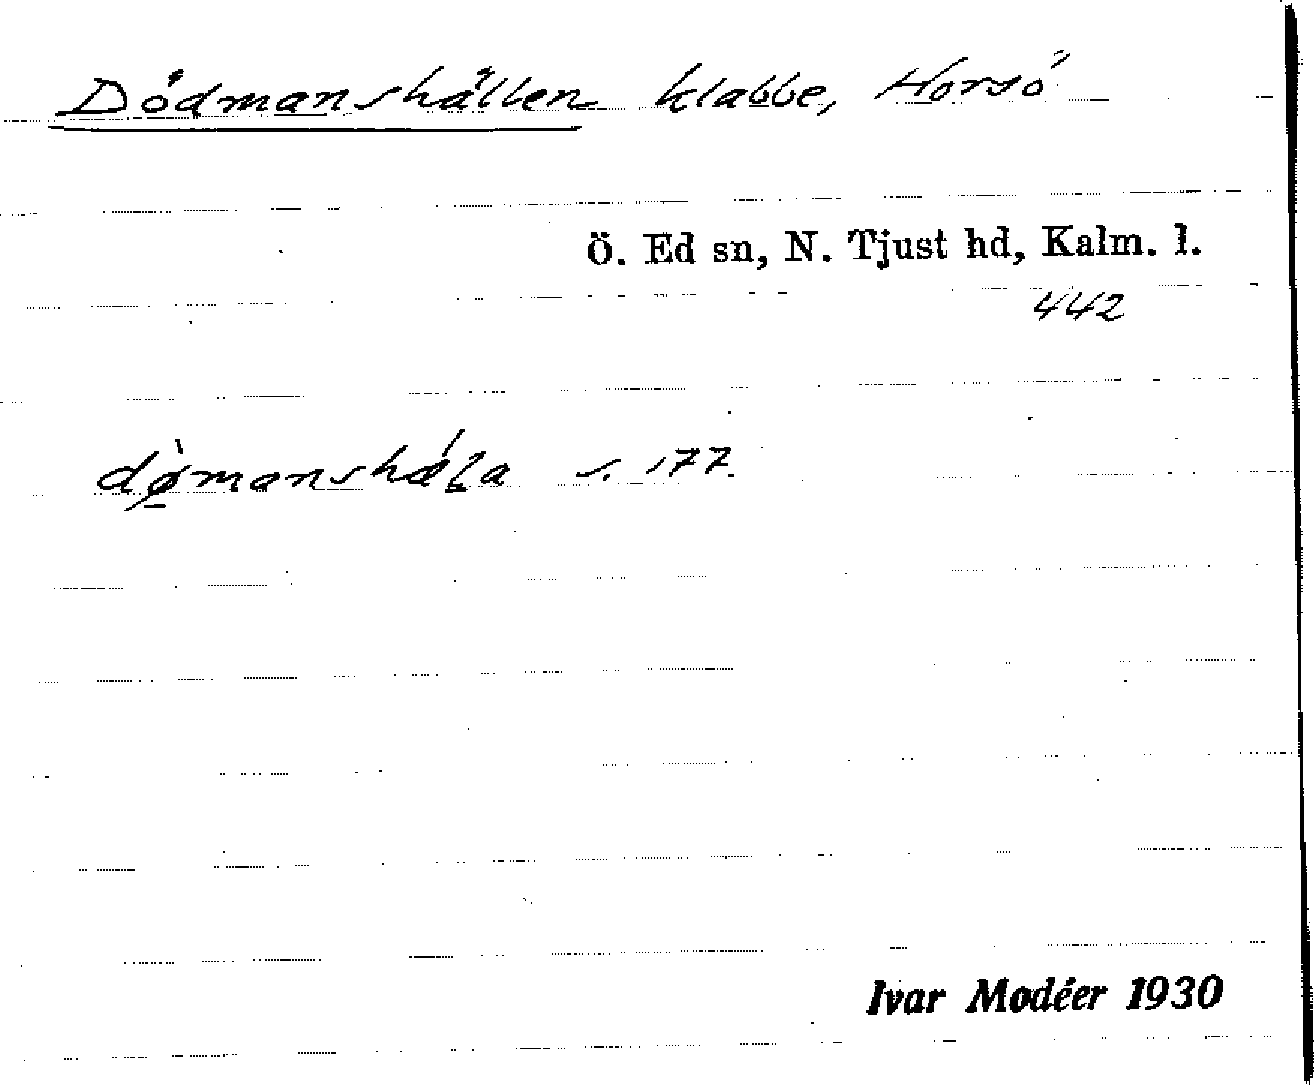 Dödmanshällen klabbe, Horsö
Ö. Ed sn, N. Tjust hd, Kalm. l.
442
dø̀manshǽla s. 177
Ivar Modéer 1930